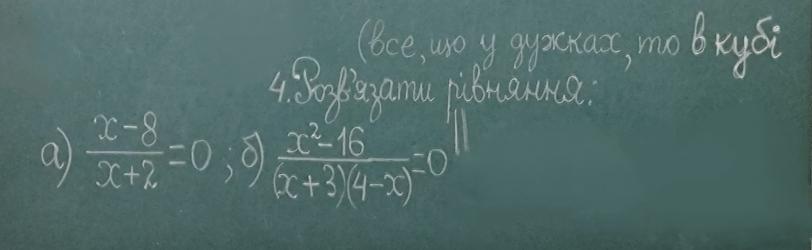 (все, що у дужках, то в кубі
4. Розв'язати рівняння:
а) x-8/x+2=0; б) x²-16/(x+3)(4-x)=0